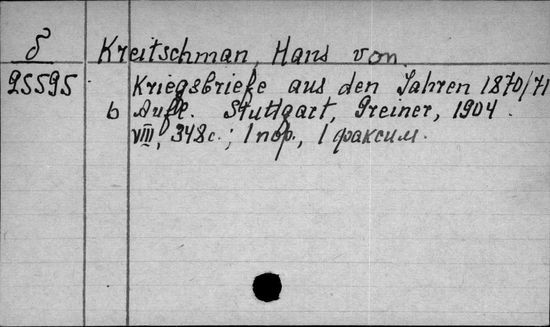 δ Kreitschman, Hans von.
95595 Kriegsbriefe aus den Jahren 1870/71
6 Aufl. Stuttgart, Greiner, 1904.
VIII, 348 с.; 1 пор., 1 факсим.